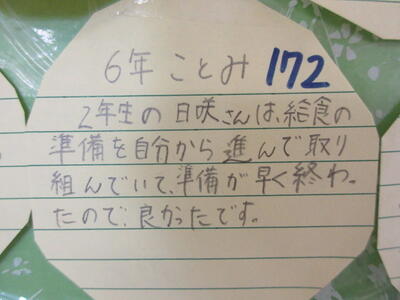 6年 ことみ 172
2年生の日咲さんは、給食の
準備を自分から進んで取り
組んでいて、準備が早く終わっ
たので、良かったです。